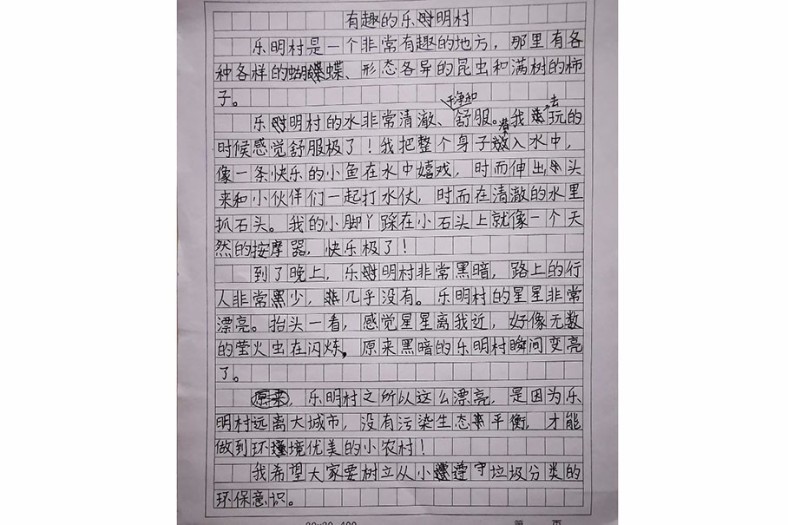 有趣的乐明村
乐明村是一个非常有趣的地方，那里有各
种各样的蝴蝶、形态各异的昆虫和满树的柿
子。
干净和
去
乐明村的水非常清澈、舒服。我玩的
时候感觉舒服极了！我把整个身子潜入水中，
像一条快乐的小鱼在水中嬉戏，时而伸出头
来和小伙伴们一起打水仗，时而在清澈的水里
抓石头。我的小脚丫踩在小石头上就像一个天
然的按摩器，快乐极了！
到了晚上，乐明村非常黑暗，路上的行
人非常少，几乎没有。乐明村的星星非常
漂亮。抬头一看，感觉星星离我近，好像无数
的萤火虫在闪烁。原来黑暗的乐明村瞬间变亮
了。
原来，乐明村之所以这么漂亮，是因为乐
明村远离大城市，没有污染生态平衡，才能
做到环境优美的小农村！
我希望大家要树立从小遵守垃圾分类的
环保意识。
20×20=400
第 页